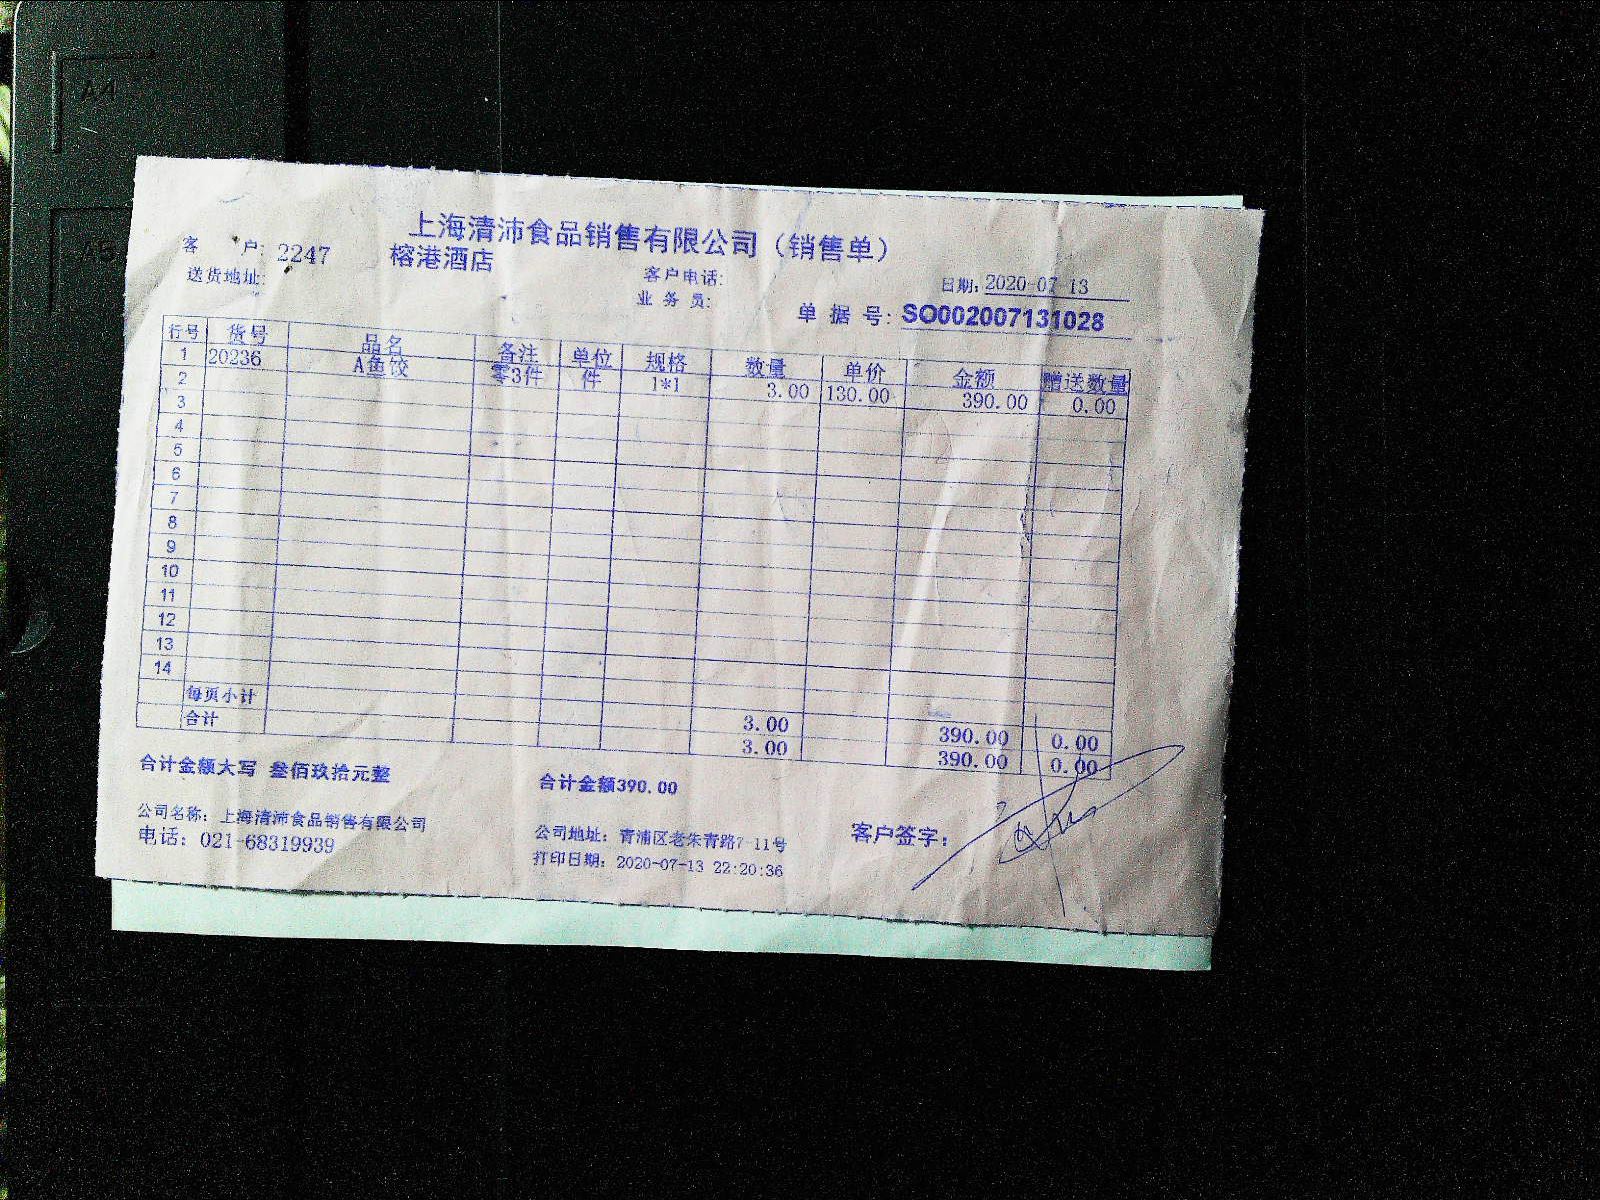 A4
A5
上海清沛食品销售有限公司（销售单）
客 户: 2247 榕港酒店
送货地址: 客户电话: 日期: 2020-07-13
业 务 员: 单 据 号: SO002007131028
行号 货号 品名 备注 单位 规格 数量 单价 金额 赠送数量
1 20236 A鱼饺 零3件 件 1*1 3.00 130.00 390.00 0.00
2
3
4
5
6
7
8
9
10
11
12
13
14
每页小计 3.00 390.00 0.00
合计 3.00 390.00 0.00
合计金额大写 叁佰玖拾元整 合计金额390.00
公司名称: 上海清沛食品销售有限公司 公司地址: 青浦区老朱青路7-11号 客户签字:
电话: 021-68319939 打印日期: 2020-07-13 22:20:36